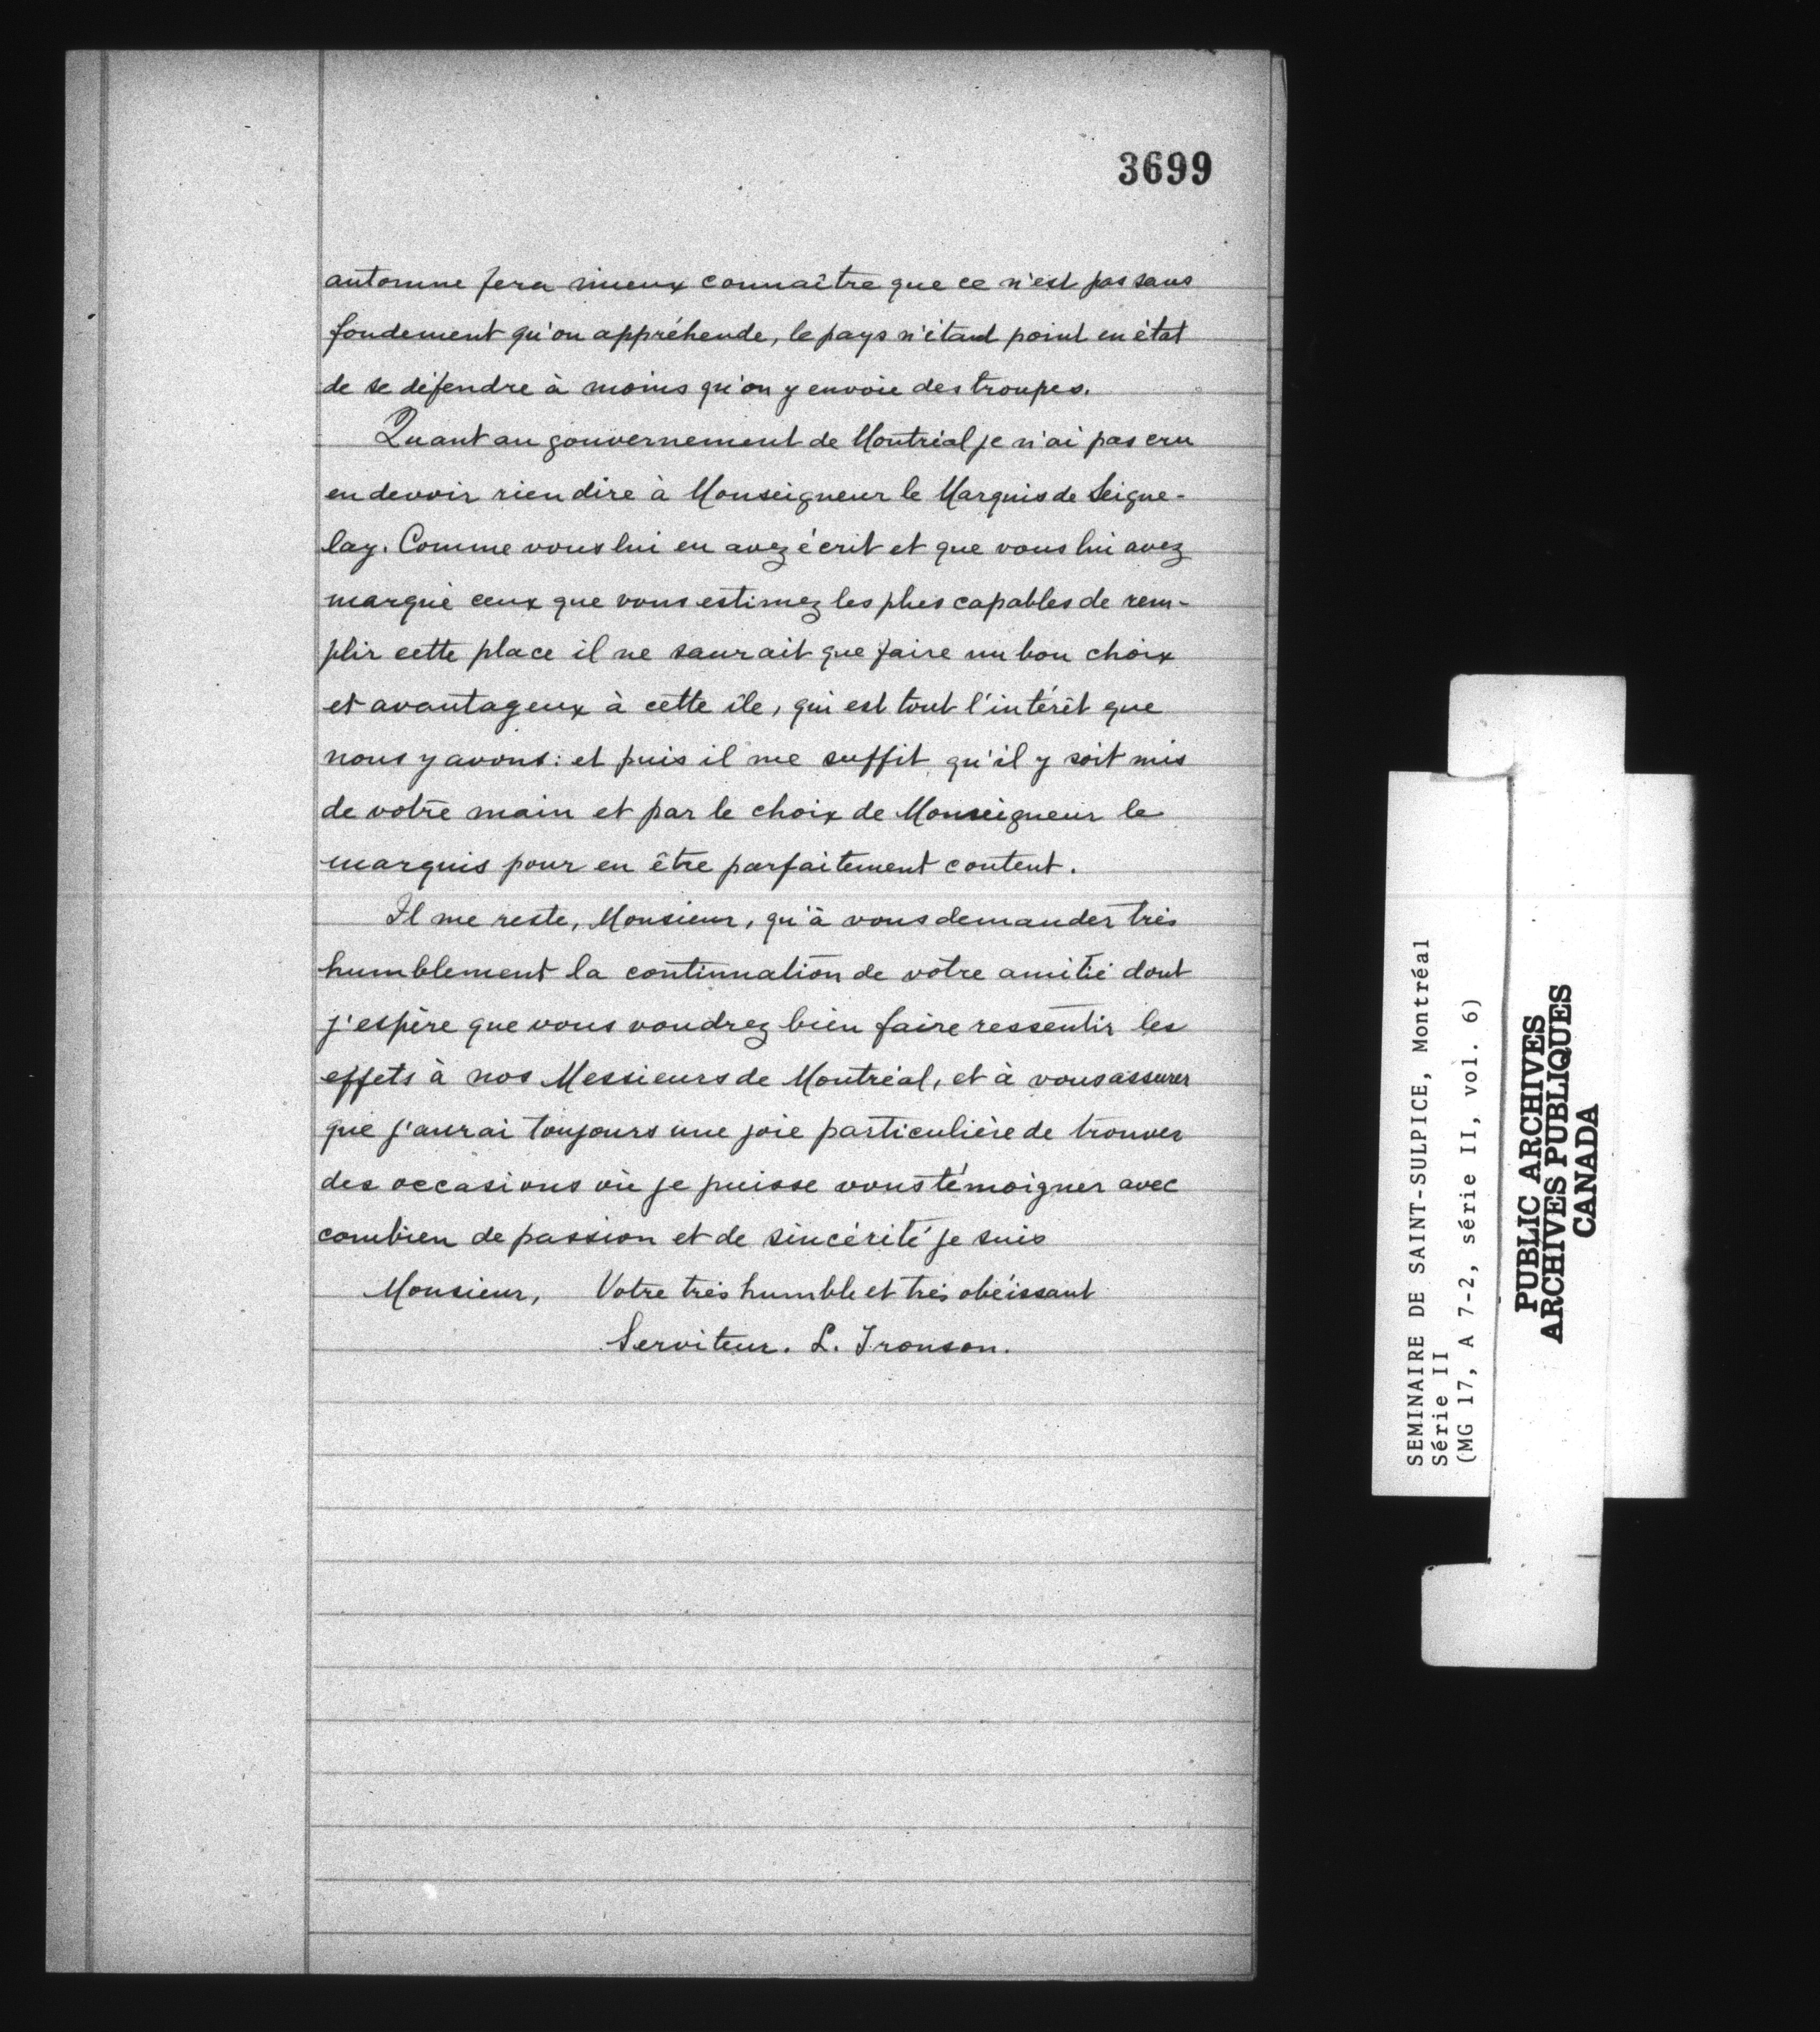 3699
automne fera mieux connaître que ce n'est pas sans
fondement qu'on appréhende, le pays n'étant point en état
de se défendre à moins qu'on y envoie des troupes.
Quant au gouvernement de Montréal je n'ai pas cru
en devoir rien dire à Monseigneur le Marquis de Seigne-
lay. Comme vous lui en avez écrit et que vous lui avez
marqué ceux que vous estimez les plus capables de rem-
plir cette place il ne saurait que faire un bon choix
et avantageux à cette île, qui est tout l'intérêt que
nous y avons: et puis il me suffit qu'il y soit mis
de votre main et par le choix de Monseigneur le
marquis pour en être parfaitement content.
Il me reste, Monsieur, qu'à vous demander très
humblement la continuation de votre amitié dont
j'espère que vous voudrez bien faire ressentir les
effets à nos Messieurs de Montréal, et à vous assurer
que j'aurai toujours une joie particulière de trouver
des occasions où je puisse vous témoigner avec
combien de passion et de sincérité je suis
Monsieur, Votre très humble et très obéissant
Serviteur. L. Tronson.
SEMINAIRE DE SAINT-SULPICE, Montréal
Série II
(MG 17, A 7-2, série II, vol. 6)
PUBLIC ARCHIVES
ARCHIVES PUBLIQUES
CANADA